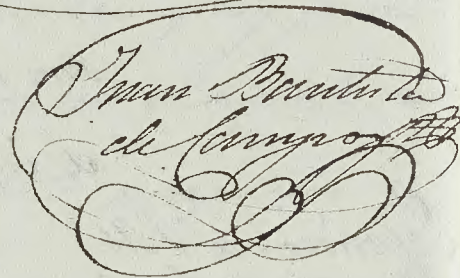 Juan Bautista
de Campo